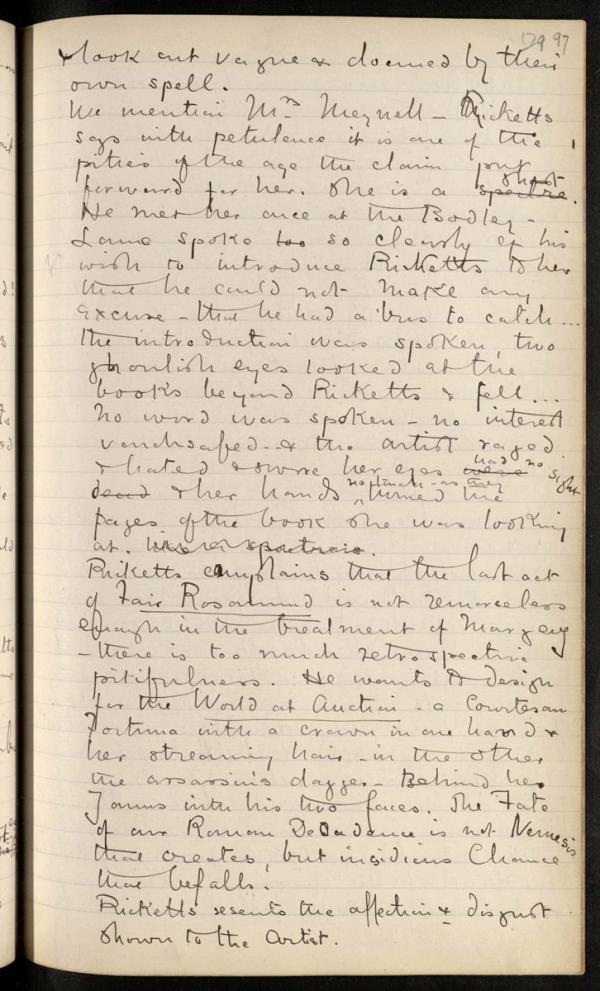 179 97
& look out vague & doomed by their
own spell.
We mention Mrs Meynell – Ricketts
says with petulence it is one of the
pities of the age the claim put
forward for her. She is a spectre. ghost
He met her once at the Bodley –
Lane spoke too so clearly of his
wish to introduce Ricketts to her
that he could not make any
excuse – that he had a 'bus to catch...
The introduction was spoken, two
ghoulish eyes looked at the
books beyond Ricketts & fell...
No word was spoken – no interest
vouchsafed – & the artist raged
& hated & swore her eyes were had no sight
dead & her hands no touch – as they turned the
pages of the book she was looking
at. like a spectre's.
Ricketts complains that the last act
of Fair Rosamund is not remorseless
enough in the treatment of Margery
– there is too much retrospective
pitifulness. He wants to design
for the World at Auction – a Courtesan
Fortuna with a crown in one hand &
her streaming hair – in the other
the assassin's dagger – Behind her
Janus with his two faces. The Fate
of our Roman Decadence is not Nemesis
that creates, but insidious Chance
that befalls.
Ricketts resents the affection & disgust
shown to the Artist.